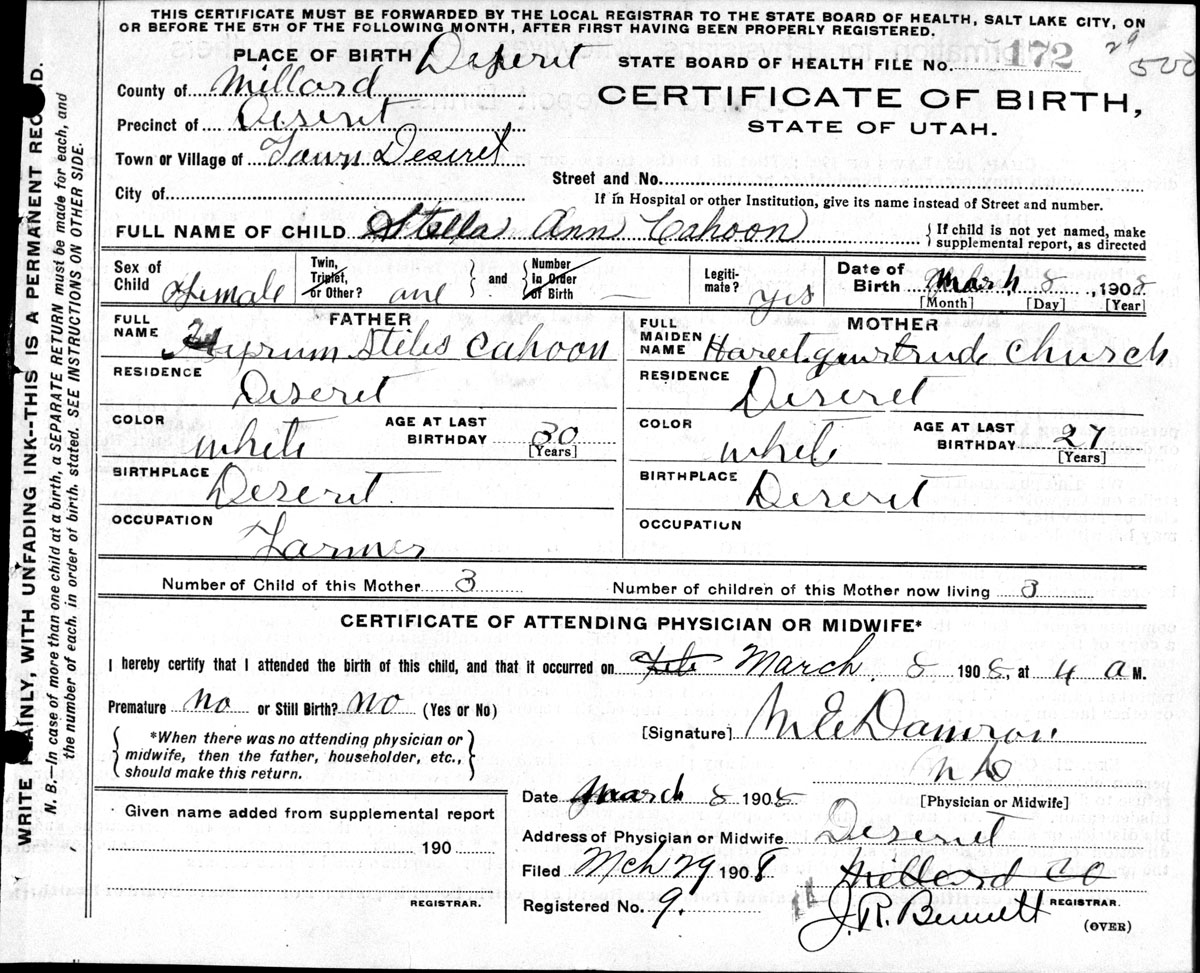 THIS CERTIFICATE MUST BE FORWARDED BY THE LOCAL REGISTRAR TO THE STATE BOARD OF HEALTH, SALT LAKE CITY, ON
OR BEFORE THE 5TH OF THE FOLLOWING MONTH, AFTER FIRST HAVING BEEN PROPERLY REGISTERED.
PLACE OF BIRTH Deseret
STATE BOARD OF HEALTH FILE NO. 172 29 500
County of Millard
CERTIFICATE OF BIRTH,
STATE OF UTAH.
Precinct of Deseret
Town or Village of Town Deseret
Street and No.
City of
If in Hospital or other Institution, give its name instead of Street and number.
FULL NAME OF CHILD Stella Ann Cahoon
If child is not yet named, make
supplemental report, as directed
Sex of Child Female
Twin, Triplet, or Other? one
and
Number In Order of Birth —
Legitimate? yes
Date of Birth March 8, 1908
[Month] [Day] [Year]
FATHER
FULL NAME Hyrum Stiles Cahoon
RESIDENCE
Deseret
COLOR White
AGE AT LAST BIRTHDAY 30
[Years]
BIRTHPLACE
Deseret
OCCUPATION
Farmer
MOTHER
FULL MAIDEN NAME Gertrude Church
RESIDENCE
Deseret
COLOR White
AGE AT LAST BIRTHDAY 27
[Years]
BIRTHPLACE
Deseret
OCCUPATION
Number of Child of this Mother 3
Number of children of this Mother now living 3
CERTIFICATE OF ATTENDING PHYSICIAN OR MIDWIFE*
I hereby certify that I attended the birth of this child, and that it occurred on Feb March. 8 1908, at 4 a M.
Premature no or Still Birth? no (Yes or No)
[Signature] M E Damron
*When there was no attending physician or
midwife, then the father, householder, etc.,
should make this return.
M D
[Physician or Midwife]
Date March 8 1908
Given name added from supplemental report
190
REGISTRAR.
Address of Physician or Midwife Deseret
Filed Mch 29 1908 Millard CO
Registered No. 9.
J. R. Bennett REGISTRAR.
(OVER)
WRITE PLAINLY, WITH UNFADING INK--THIS IS A PERMANENT RECORD.
N. B.—In case of more than one child at a birth, a SEPARATE RETURN must be made for each, and
the number of each, in order of birth, stated. SEE INSTRUCTIONS ON OTHER SIDE.